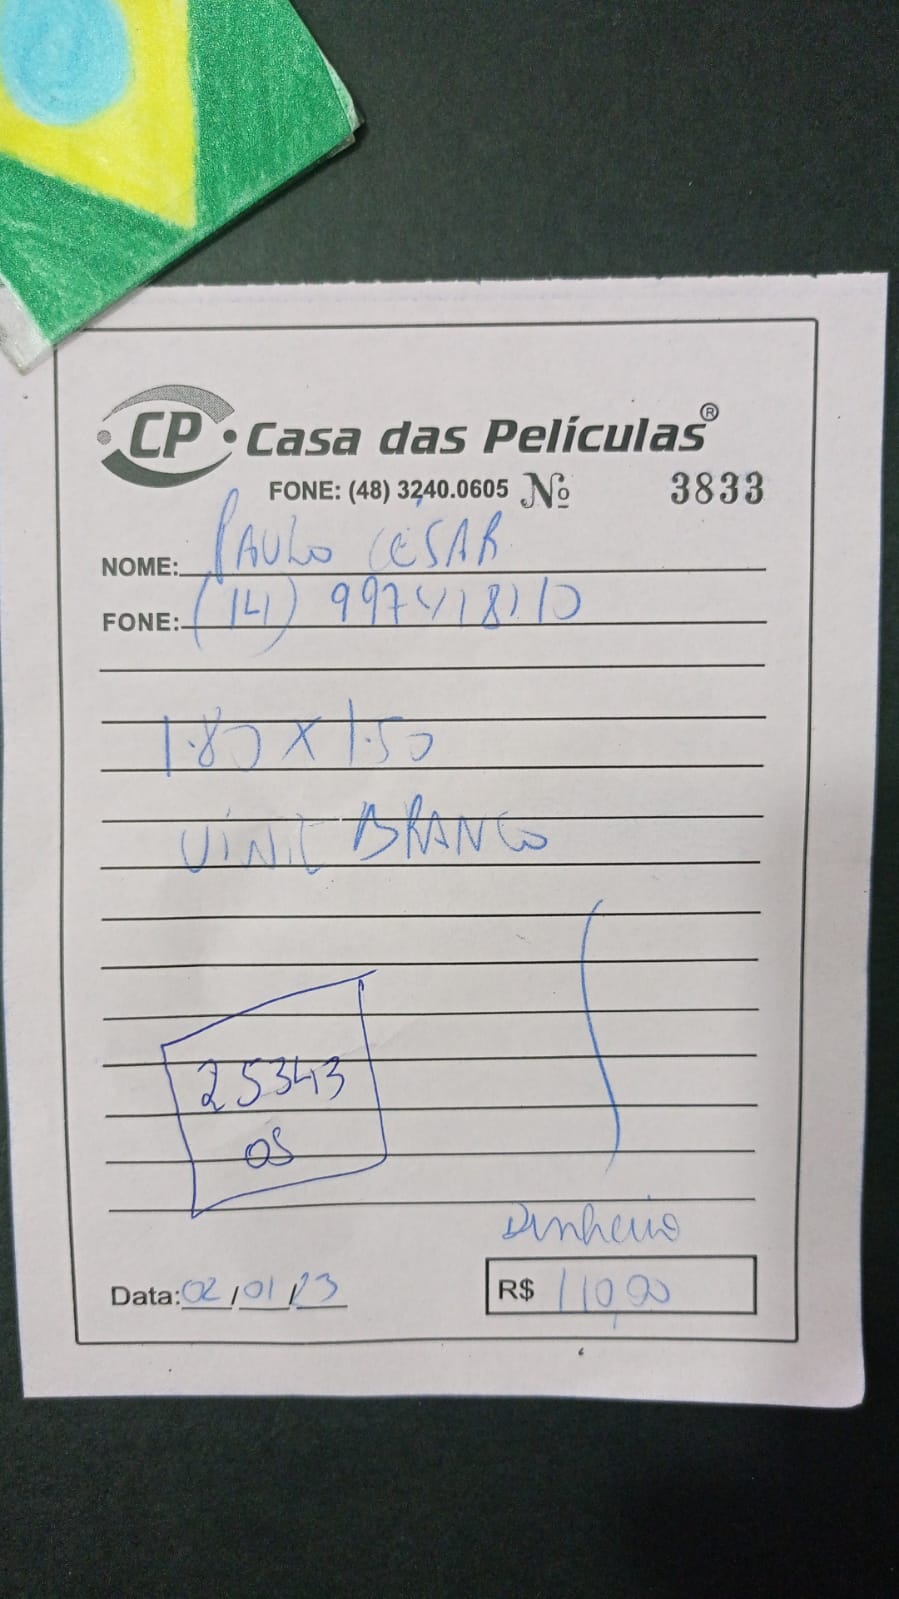 CP Casa das Películas®
FONE: (48) 3240.0605 Nº 3833
NOME: PAULO CESAR
FONE: (14)
1.80 x 1.50
VINIL BRANCO
25343
OS
Dinheiro
Data: 02/01/23 R$ 110,00